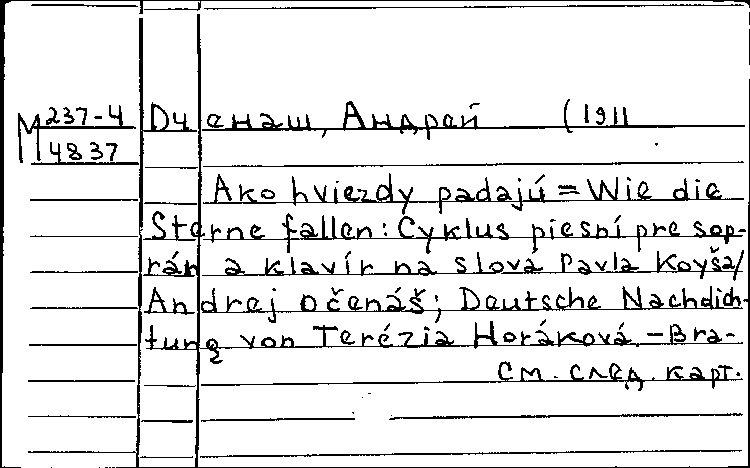 М 237-4
4837
Оченаш, Андрей (1911
Ako hviezdy padajú = Wie die
Sterne fallen: Cyklus piesní pre sop-
rán a klavír na slová Pavla Koyša/
Andrej Očenáš; Deutsche Nachdich-
tung von Terézia Horáková. - Bra-
см. след. карт.